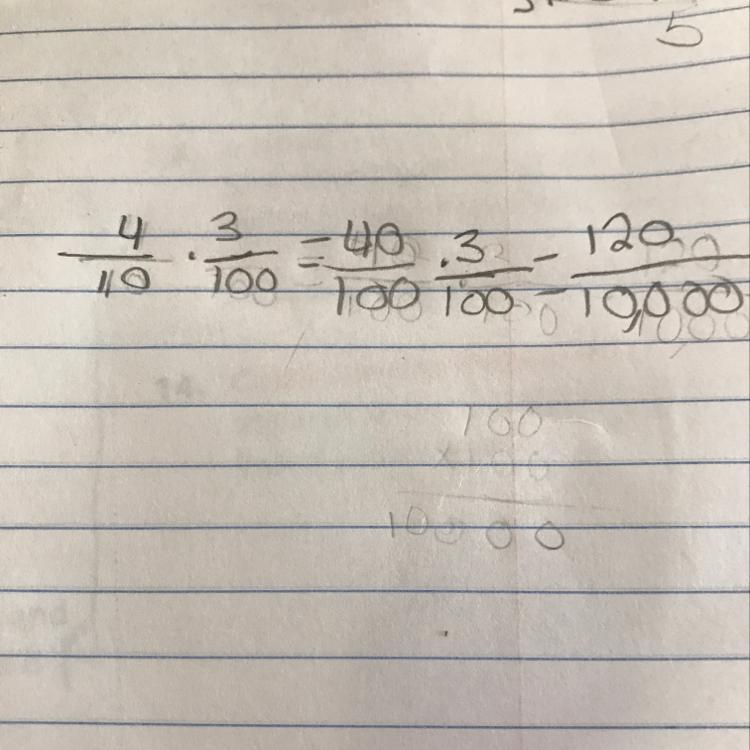 5
4/10 · 3/100 = 40/100 · 3/100 = 120/10,000
100
x100
10000